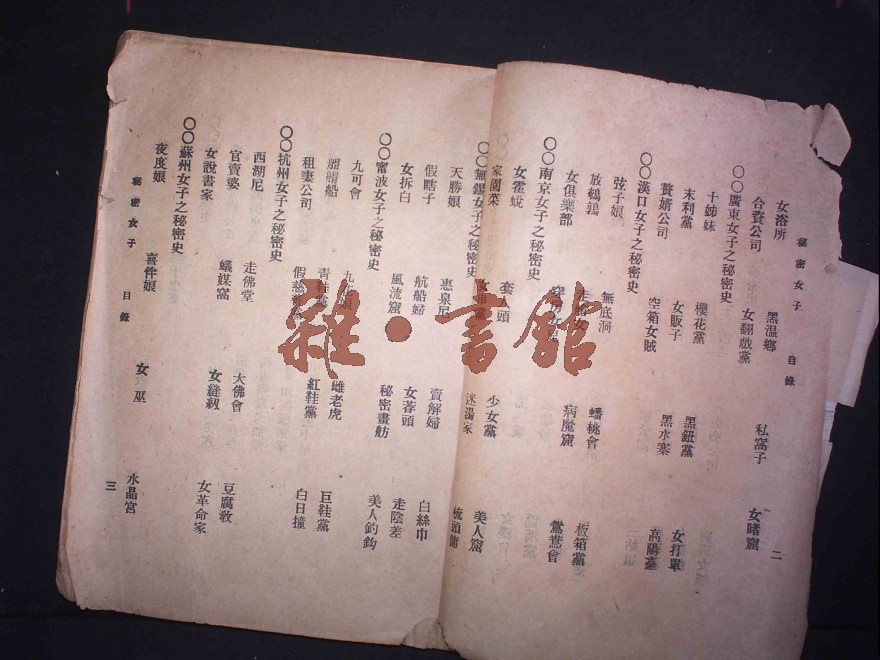 秘密女子 目錄 二
女浴所 黑溫鄉 私窩子 女賭窟
合賚公司 女翻戲黨
〇〇廣東女子之秘密史
十姊妹 櫻花黨 黑鈕黨 女打單
末利黨 女販子 黑水寨 高陽臺
贅婿公司 空箱女賊
〇〇漢口女子之秘密史
弦子娘 無底洞 蟠桃會 板箱黨
放鵪鶉 病魔窟 鴛鴦會
女俱樂部
〇〇南京女子之秘密史
女霍蛻 套人頭 少女黨 美人窟
家闈菜 迷湯家 梳頭傭
〇〇無錫女子之秘密史
天勝娘 惠泉尼 賣解婦 白絲巾
假瞎子 航船婦 女蓉頭 走陰差
女拆白 風流窟 秘密畫舫 美人釣鈎
〇〇甯波女子之秘密史
九可會 雌老虎 巨鞋黨
胭脂船 青鞋黨 紅鞋黨 白日撞
租妻公司
〇〇杭州女子之秘密史
西湖尼 走佛堂 大佛會 豆腐教
官賣婆 蟻媒窩 女縫紉 女革命家
女說書家
〇〇蘇州女子之秘密史
夜度娘 喜件娘 女巫 水晶宮
秘密女子 目錄 三
雜·書館